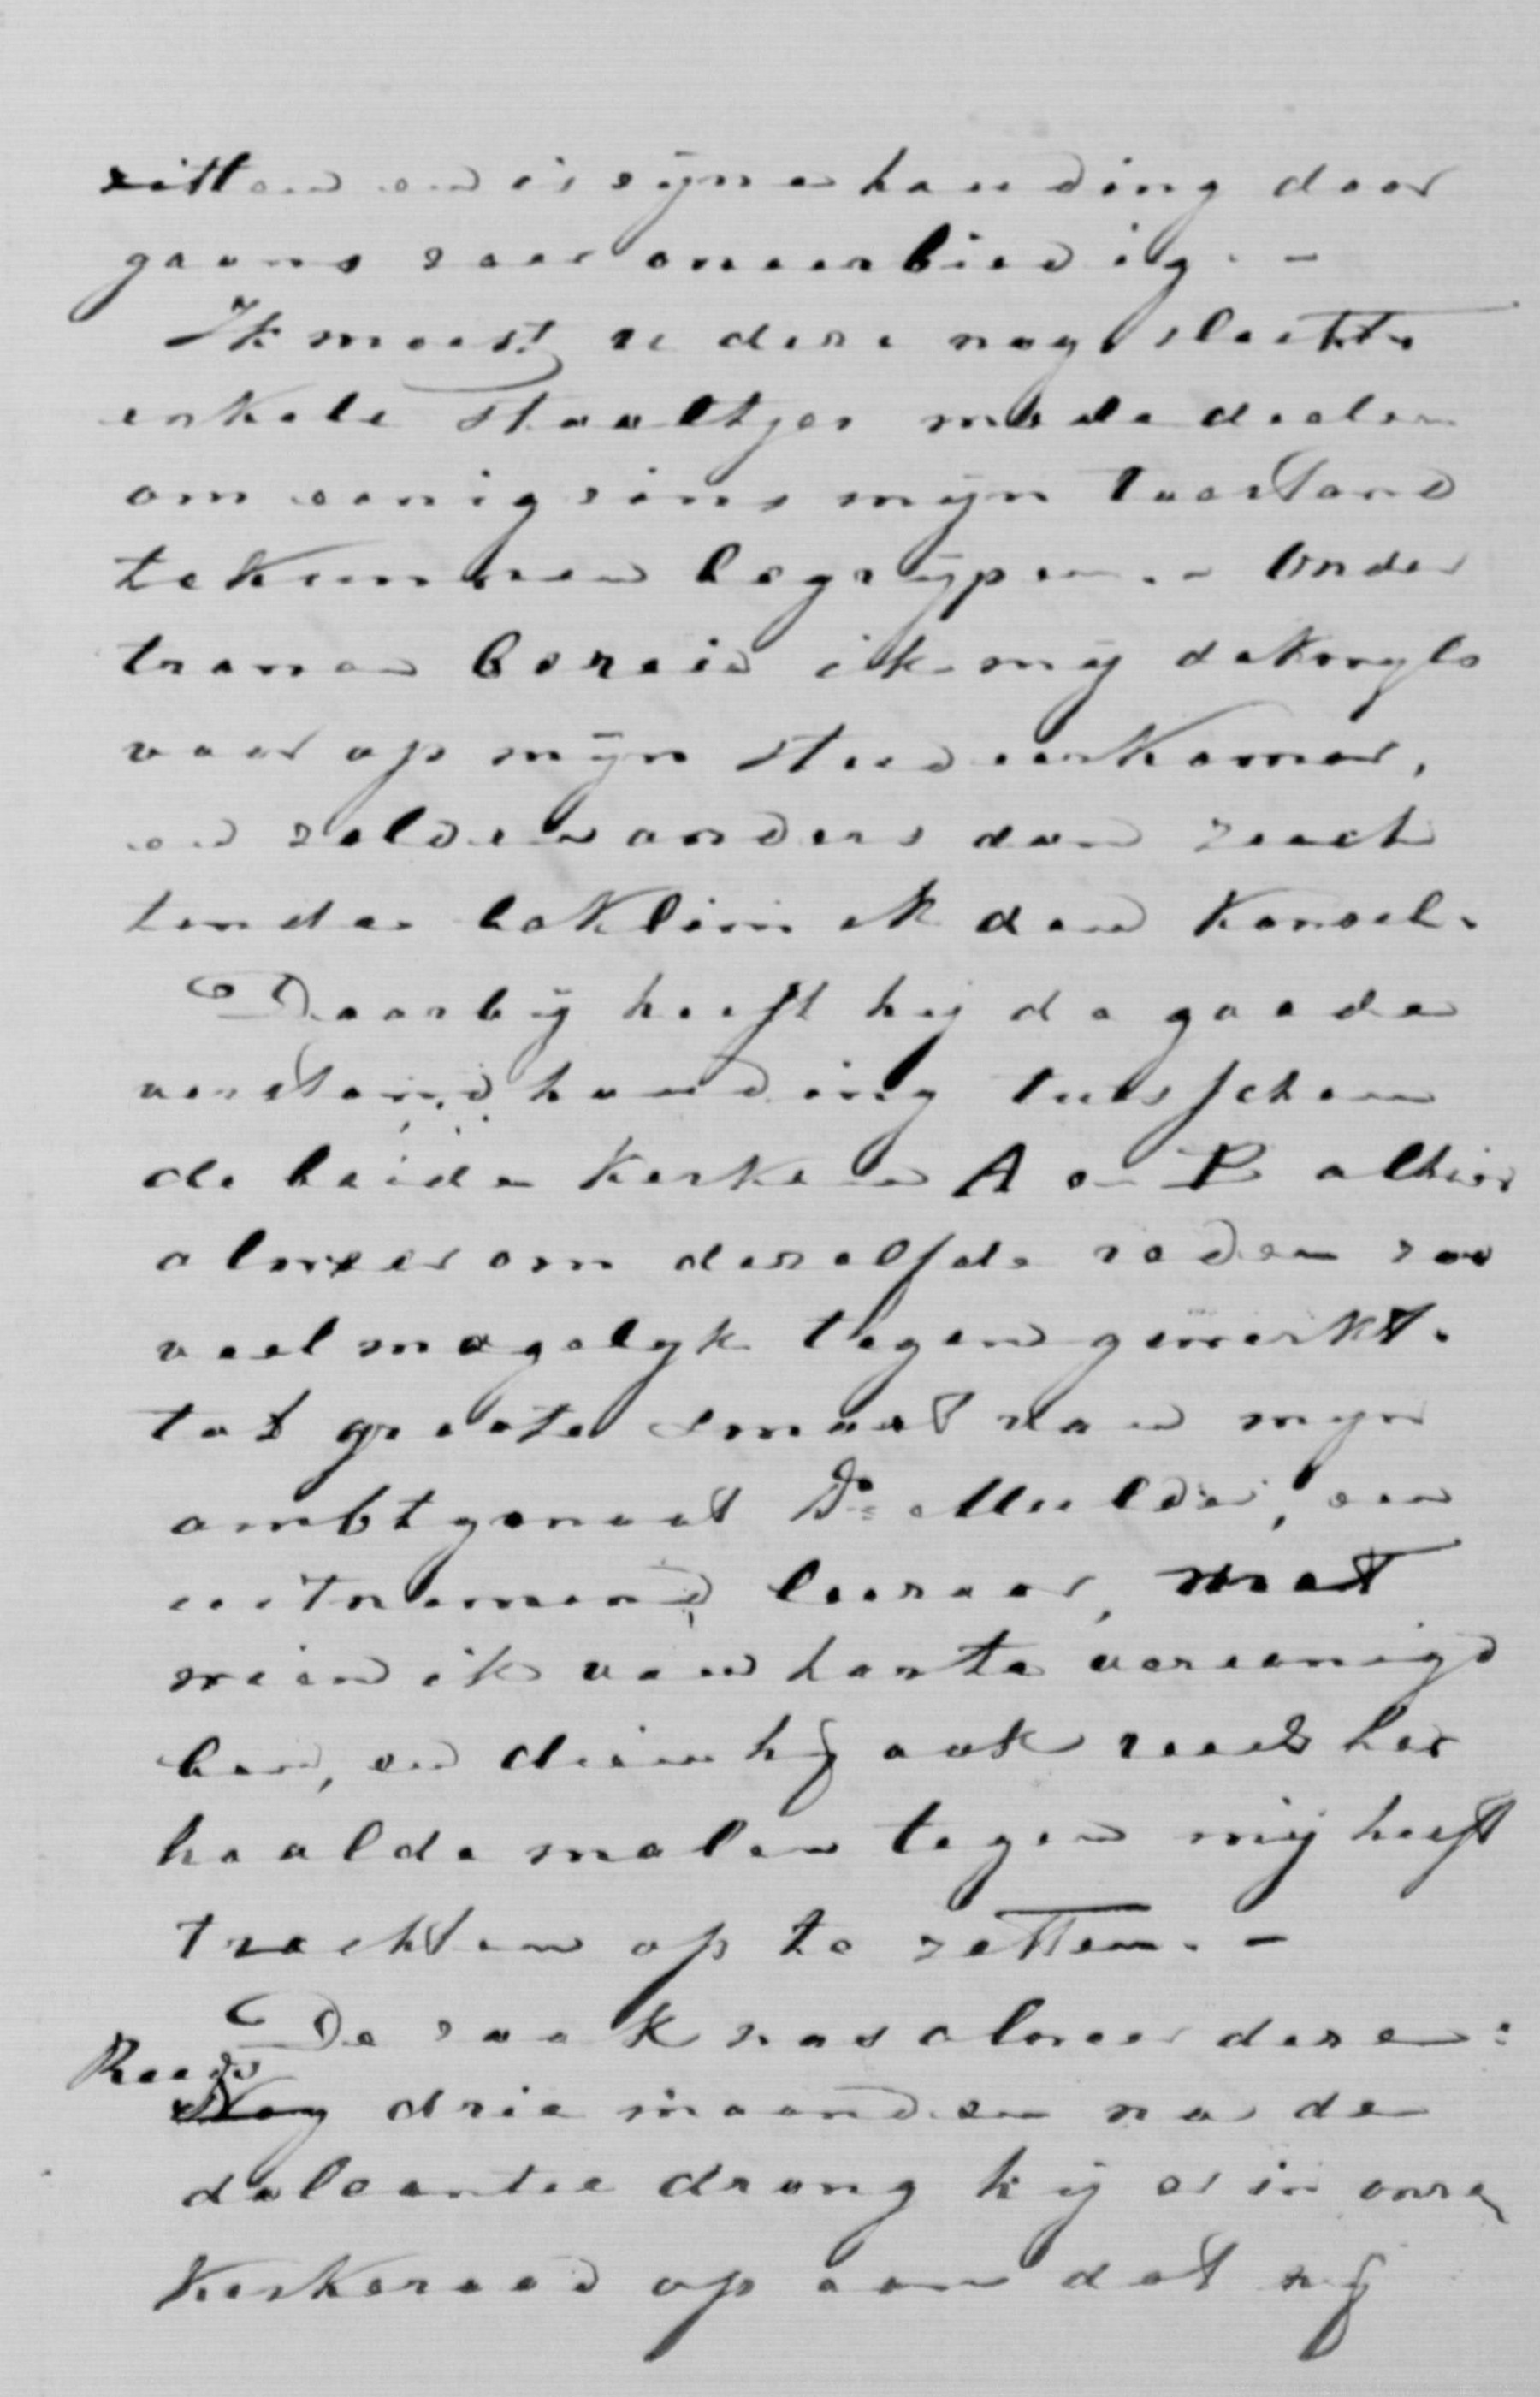 zitten en is zijne houding door
gaans zeer oneerbiedig. –
Ik moest u deze nog slechts
enkele staaltjes mededeelen
om eenigzins mijn toestand
te kunnen begrijpen. – Onder
tranen bereid ik mij dikwijls
voor op mijn studeerkamer,
en zelden anders dan zuch
tende beklim ik den kansel.
Daarbij heeft hij de goede
verstandhouding tusschen
de beide kerken A en B alhier
alweer om dezelfde reden zoo
veel mogelijk tegengewerkt.
tot groote smart van mijn
ambtgenoot Ds. Mulder, een
uitnemend leeraar, met
wien ik van harte vereenigd
ben, en dien hij ook reeds her
haalde malen tegen mij heeft
trachten op te zetten. –
De zaak was alweer deze:
Reeds
Nog drie maanden na de
doleantie drong hij er in onze
kerkeraad op aan dat wij